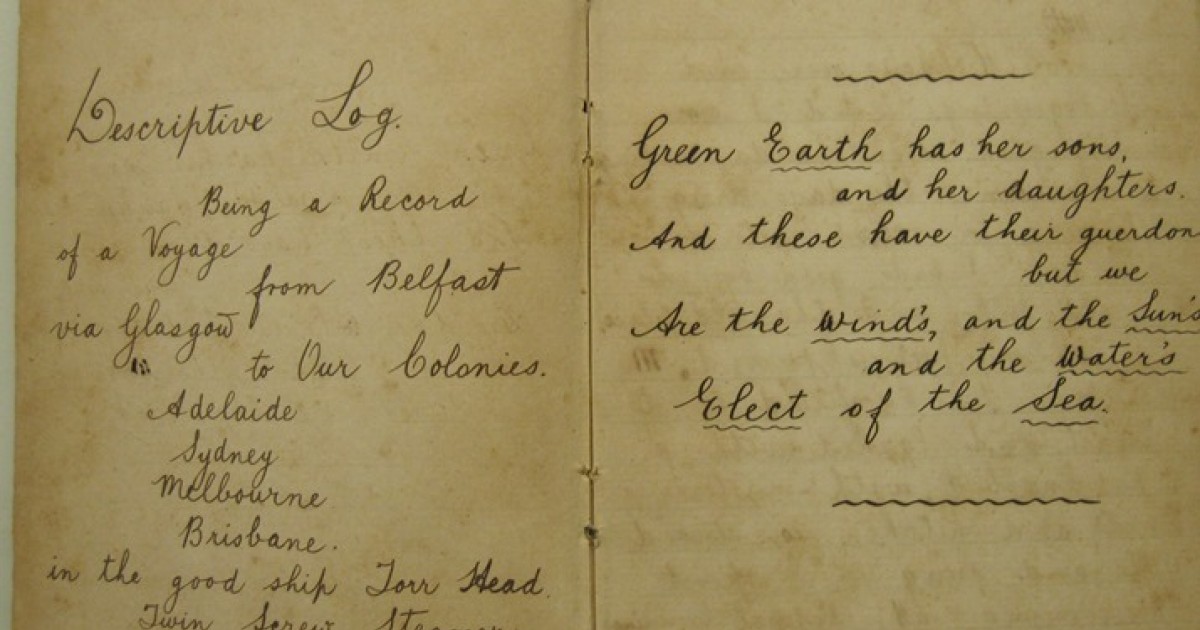 Descriptive Log.
Being a Record
of a Voyage
from Belfast
via Glasgow
to Our Colonies.
Adelaide
Sydney
Melbourne
Brisbane.
in the good ship Torr Head.
Twin Screw Steamer
Green Earth has her sons,
and her daughters.
And these have their guerdon
but we
Are the wind's, and the Sun's
and the Water's
Elect of the Sea.